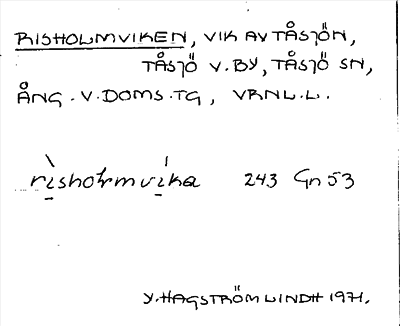 RISHOLMVIKEN, VIK AV TÅSJÖN,
TÅSJÖ V. BY, TÅSJÖ SN,
ÅNG. V. DOMS. TG, VRNL.L.
risholmvika 243 Gn 53
Y. HAGSTRÖM LINDH 1971.